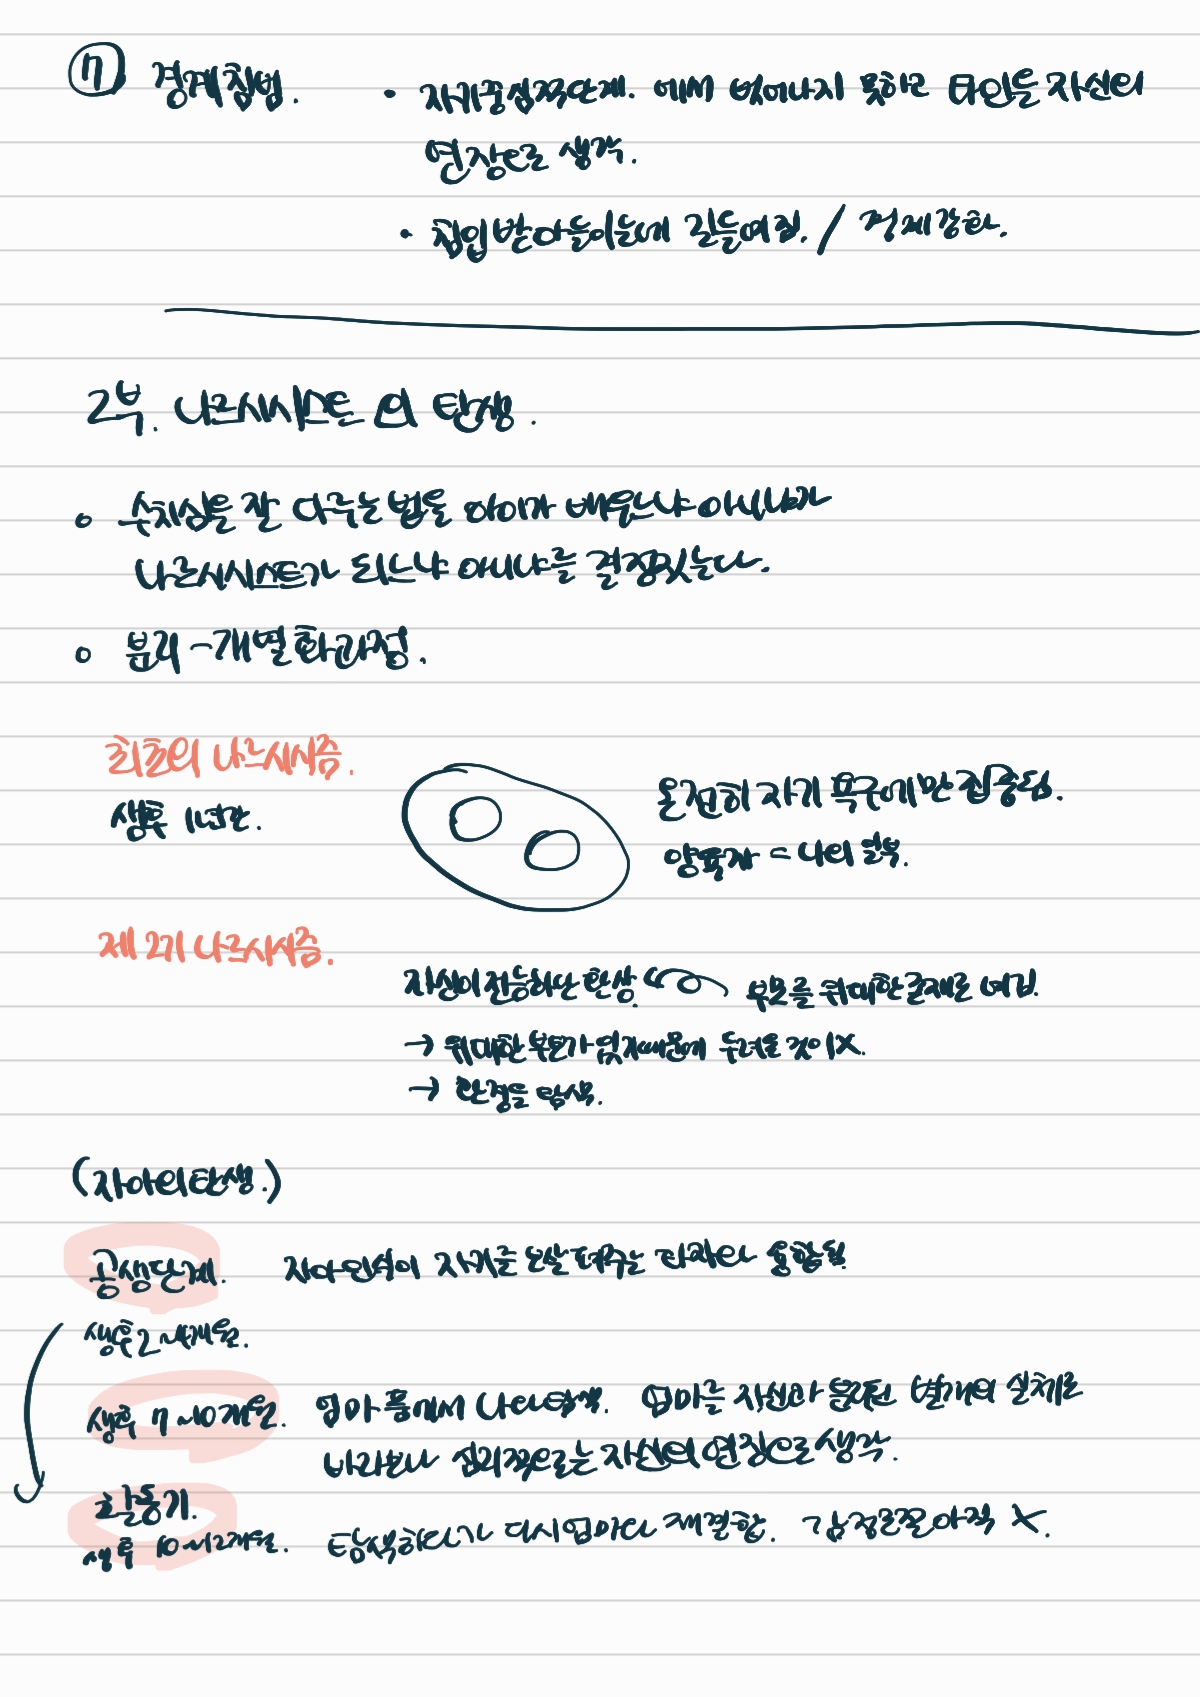 ⑦ 경계침범. • 자기중심적단계.에서 벗어나지 못하고 타인을 자신의
연장으로 생각.
• 침입 받아들이는데 길들여짐. / 정체강화.
2부. 나르시시스트의 탄생.
○ 수치심을 잘 다루는 법을 아이가 배우느냐 아니냐가
나르시시스트가 되느냐 아니냐를 결정짓는다.
○ 분리-개별화과정.
최초의 나르시시즘.
생후 1년간.
온전히 자기 욕구에만 집중됨.
양육자 = 나의 일부.
제 2기 나르시시즘.
자신이 전능하단 환상 부모를 위대한 존재로 여김.
→ 위대한 부모가 있기때문에 두려울 것이 X.
→ 환경을 탐색.
(자아의 탄생.)
공생단계. 자아인식이 자기를 보살펴주는 타자와 융합됨
생후 2~4개월.
생후 7~10개월. 엄마 품에서 나와 탐색. 엄마를 자신과 분리된 별개의 실체로
바라보나 심리적으로는 자신의 연장으로 생각.
활동기.
생후 10~12개월. 탐색하다가 다시 엄마와 재결합. 감정조절 아직 X.